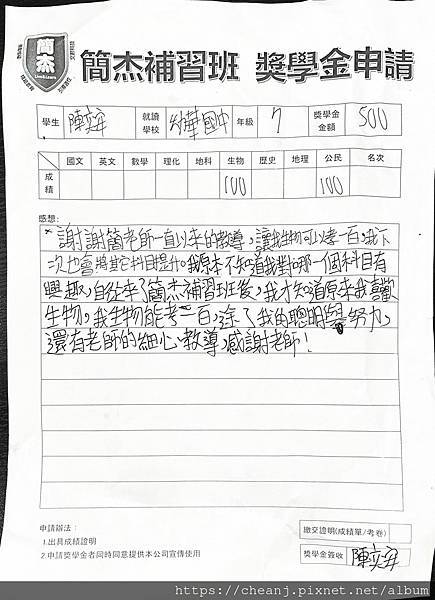 簡杰
簡杰補習班 獎學金申請
學生 陳奕 就讀學校 華國中 年級 7 獎學金金額 500
國文 英文 數學 理化 地科 生物 歷史 地理 公民 名次
成績 100 100
感想:
謝謝簡老師一直以來的教導,讓我生物可以考一百,我下
次也會將其它科目提升。我原本不知道我對哪一個科目有
興趣,自從來了簡杰補習班後,我才知道原來我喜歡
生物,我生物能考一百,途了我的聰明與努力,
還有老師的細心教導,感謝老師!
申請辦法:
1.出具成績證明
2.申請獎學金者同時同意提供本公司宣傳使用
繳交證明(成績單/考卷)
獎學金簽收 陳奕
https://cheanj.pixnet.net/album